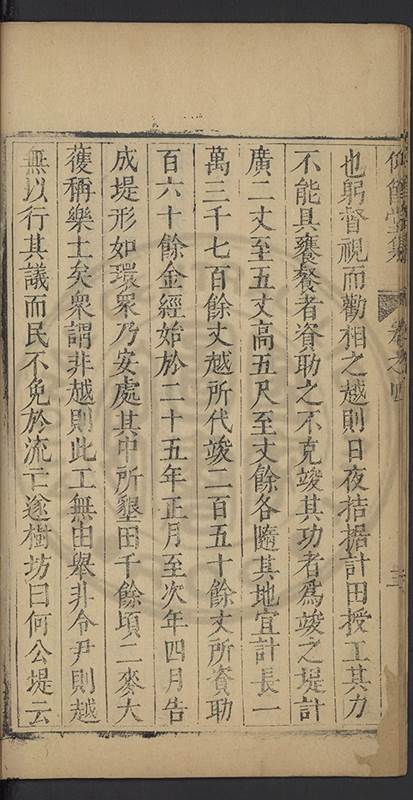 仰節堂集 卷之四
也躬督視而勸相之越則日夜拮据計田授工其力
不能具饔餐者資助之不克竣其功者為竣之堤計
廣二丈至五丈高五尺至丈餘各隨其地宜計長一
萬三千七百餘丈越所代竣二百五十餘丈所資助
百六十餘金經始於二十五年正月至次年四月告
成堤形如環眾乃安處其中所墾田千餘頃二麥大
穫稱樂土矣眾謂非越則此工無由舉非令尹則越
無以行其議而民不免於流亡遂樹坊曰何公堤云